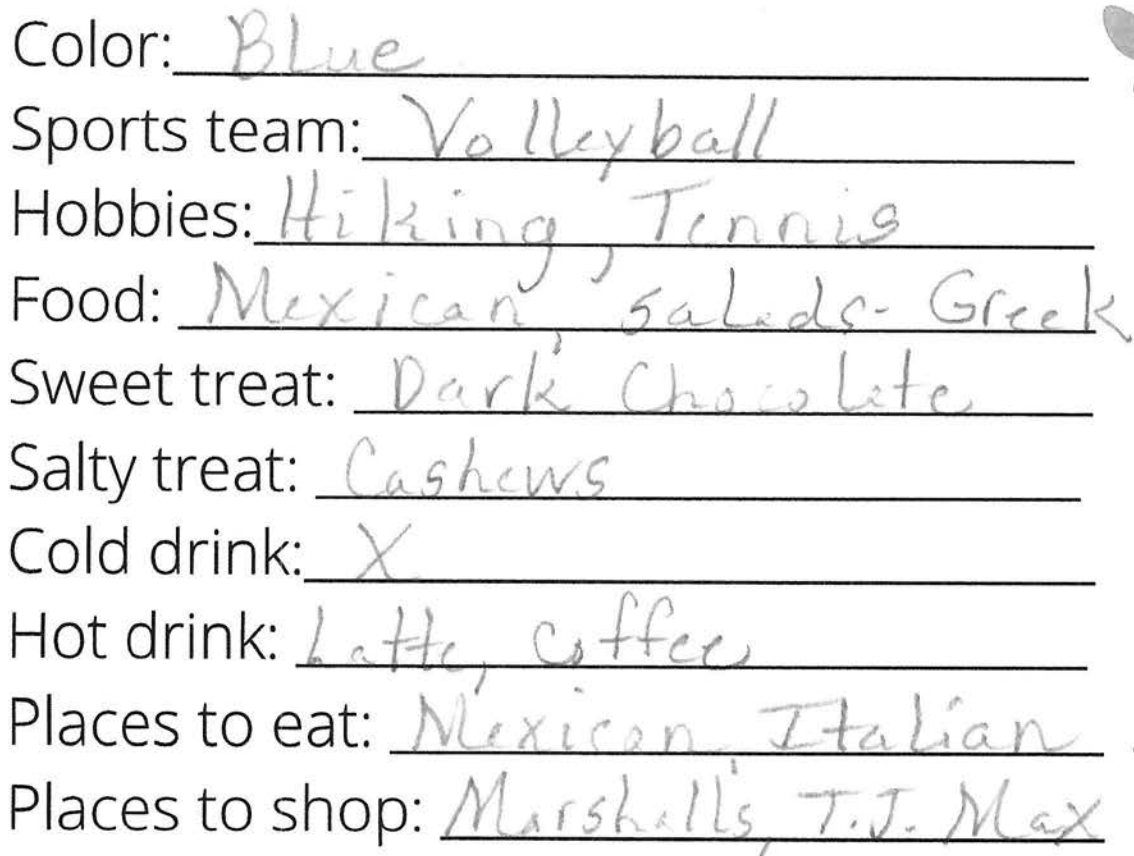 Color: Blue
Sports team: Volleyball
Hobbies: Hiking, Tennis
Food: Mexican, salads- Greek
Sweet treat: Dark Chocolate
Salty treat: Cashews
Cold drink: X
Hot drink: Latte, coffee
Places to eat: Mexican, Italian
Places to shop: Marshalls, T.J. Max